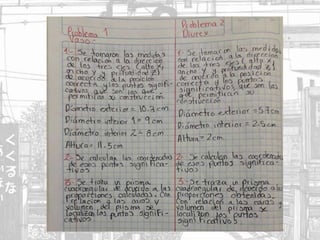 Problema 1
Vaso:
1.- Se tomaron las medidas
con relación a la dirección
de los tres ejes (alto,
ancho y profundidad)
de acuerdo a la posición
correcta y los puntos signifi-
cativos que son los que
permitira su construcción
Diámetro exterior = 10.3 cm
Diámetro interior 1 = 9 cm
Diámetro interior 2 = 8 cm
Altura = 11.5 cm
2- Se calculan las coordenadas
de esos puntos significa-
tivos
3- Se traza un prisma
cuadrangular de acuerdo a las
proporciones calculadas. Con
relación a los ejes y
volumen del prisma se
localizan los puntos signifi-
cativos
Problema 2
Diurex
1- Se tomaron las medidas
con relación a la dirección
de los tres ejes (alto,
ancho y profundidad)
de acuerdo a la posición
correcta y los puntos
significativos que son los
que permitiran su
construcción
Diámetro exterior = 5.7 cm
Diámetro interior = 2.5 cm
Altura = 2 cm
2- Se calculan las coordenadas
de esos puntos significa-
tivos
3- Se traza un prisma
cuadrangular de acuerdo a las
proporciones obtenidas.
Con relación a los ejes y
volumen del prisma se
localizan los puntos
significativos